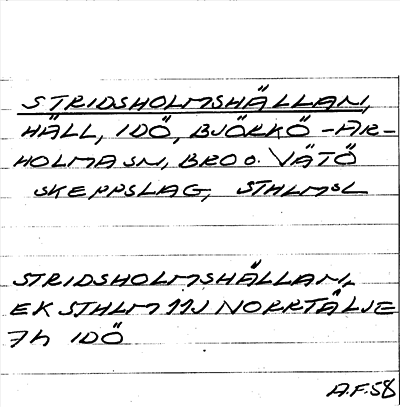 STRIDSHOLMSHÄLLAN,
HÄLL, IDÖ, BJÖRKÖ-AR-
HOLMA SN, BRO o. VÄTÖ
SKEPPSLAG, STHLMSL
STRIDSHOLMSHÄLLAN,
EK STHLM 11J NORRTÄLJE
7h IDÖ
A.F.58